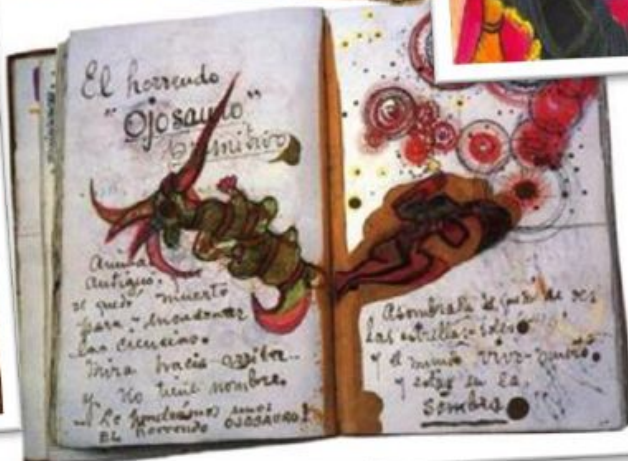 El horrendo
"Ojosauro"
primitivo
Animal
antiguo,
se quedó muerto
para encadenar
las ciencias.
Mira hacia arriba..
y no tiene nombre.
_ Le pondremos uno:
EL horrendo OJOSAURO!
Asombrada de ver
las estrellas-soles
y el mundo vivo-muerto
y estar en la
sombra